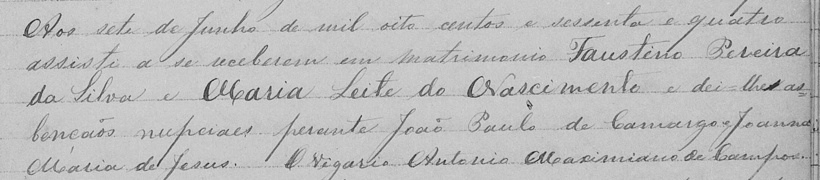 Aos sete de Junho de mil oito centos e sessenta e quatro
assisti a se receberem em matrimonio Faustino Pereira
da Silva e Maria Leite do Nascimento e dei-lhes as
bencaõs nupciaes perante João Paulo de Camargo e Joanna
Maria de Jesus. O Vigario Antonio Maximiano de Campos.